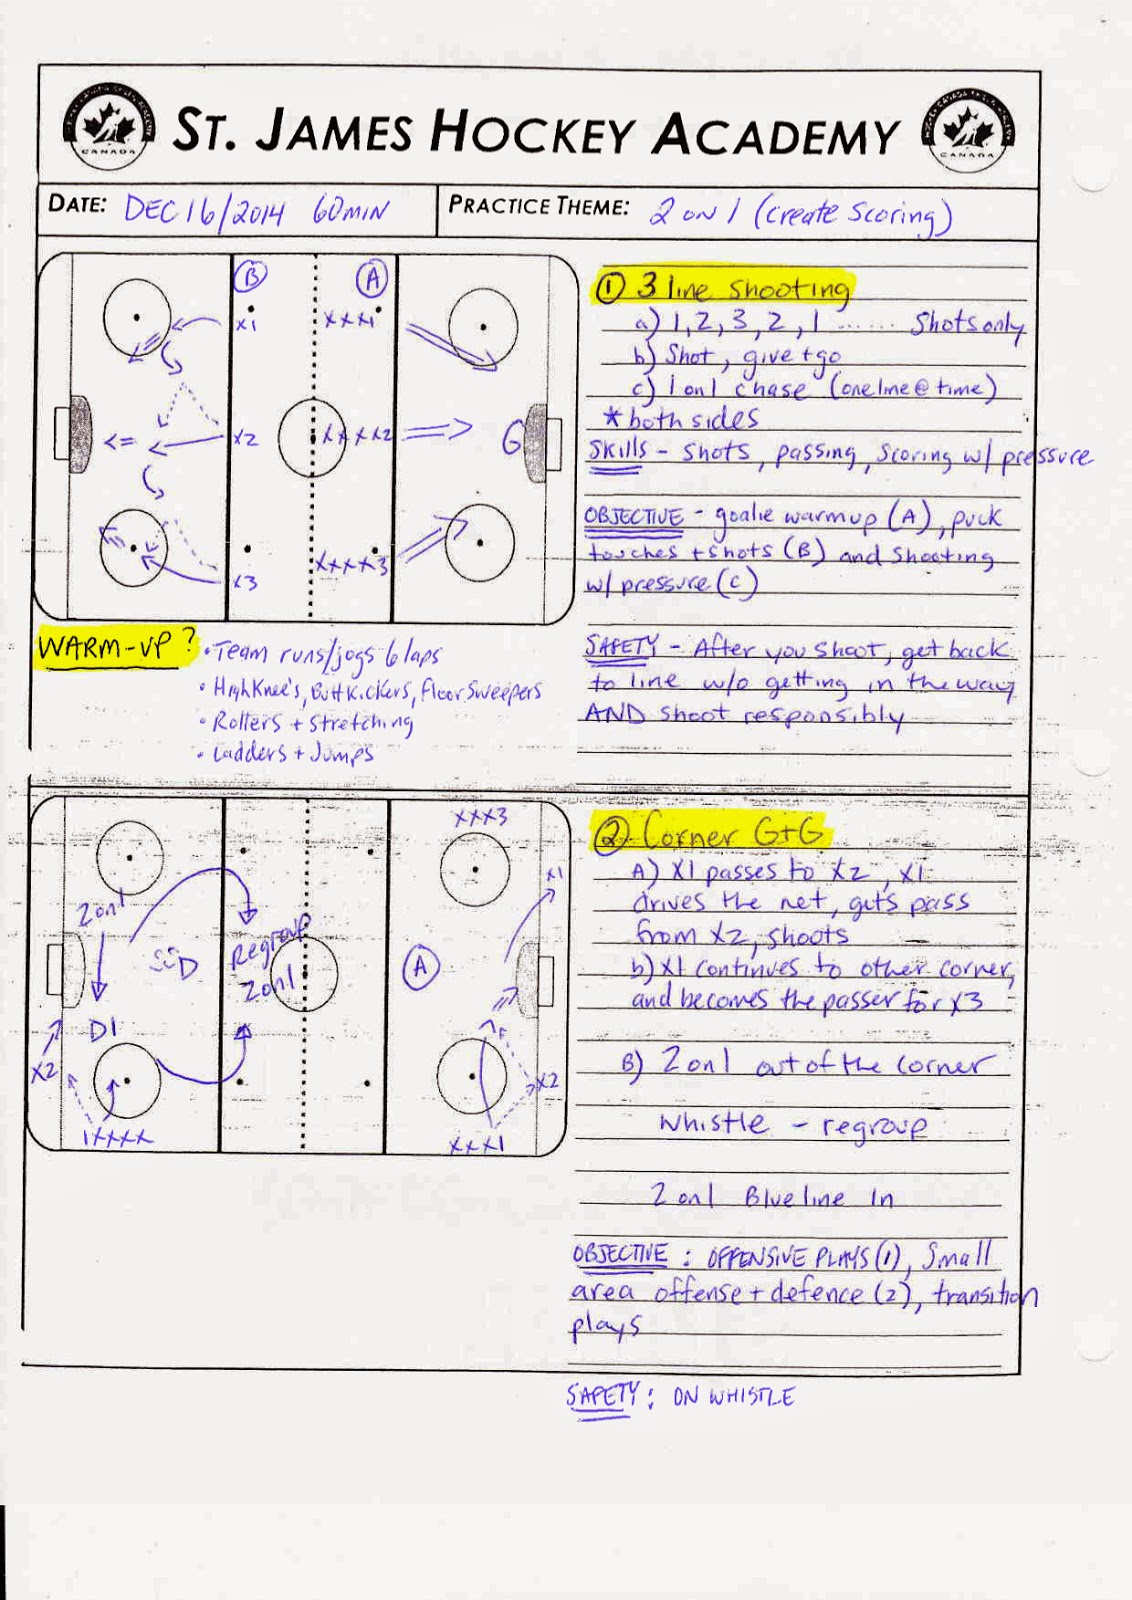 ST. JAMES HOCKEY ACADEMY
CANADA
CANADA
DATE: DEC 16/2014 60MIN
PRACTICE THEME: 2 on 1 (create scoring)
B
A
X1
XXX1
X2
XXXX2
G
X3
XXXX3
① 3 line shooting
a) 1, 2, 3, 2, 1 ....... Shots only
b) Shot, give + go
c) 1 on 1 chase (one line @ time)
* both sides
SKILLS - shots, passing, scoring w/ pressure
OBJECTIVE - goalie warmup (A), puck
touches + shots (B) and shooting
w/ pressure (C)
SAFETY - After you shoot, get back
to line w/o getting in the way
AND shoot responsibly
WARM-UP?
• Team runs/jogs 6 laps
• High Knee's, Butt Kickers, Floor Sweepers
• Rollers + stretching
• Ladders + Jumps
XXX3
X1
2 on 1
D
Regroup
2 on 1
A
D1
X2
X2
1XXXX
XXX1
② Corner G+G
A) X1 passes to X2, X1
drives the net, gets pass
from X2, shoots
b) X1 continues to other corner,
and becomes the passer for X3
B) 2 on 1 out of the corner
whistle - regroup
2 on 1 Blueline In
OBJECTIVE: OFFENSIVE PLAYS (1), Small
area offense + defence (2), transition
plays
SAFETY: ON WHISTLE